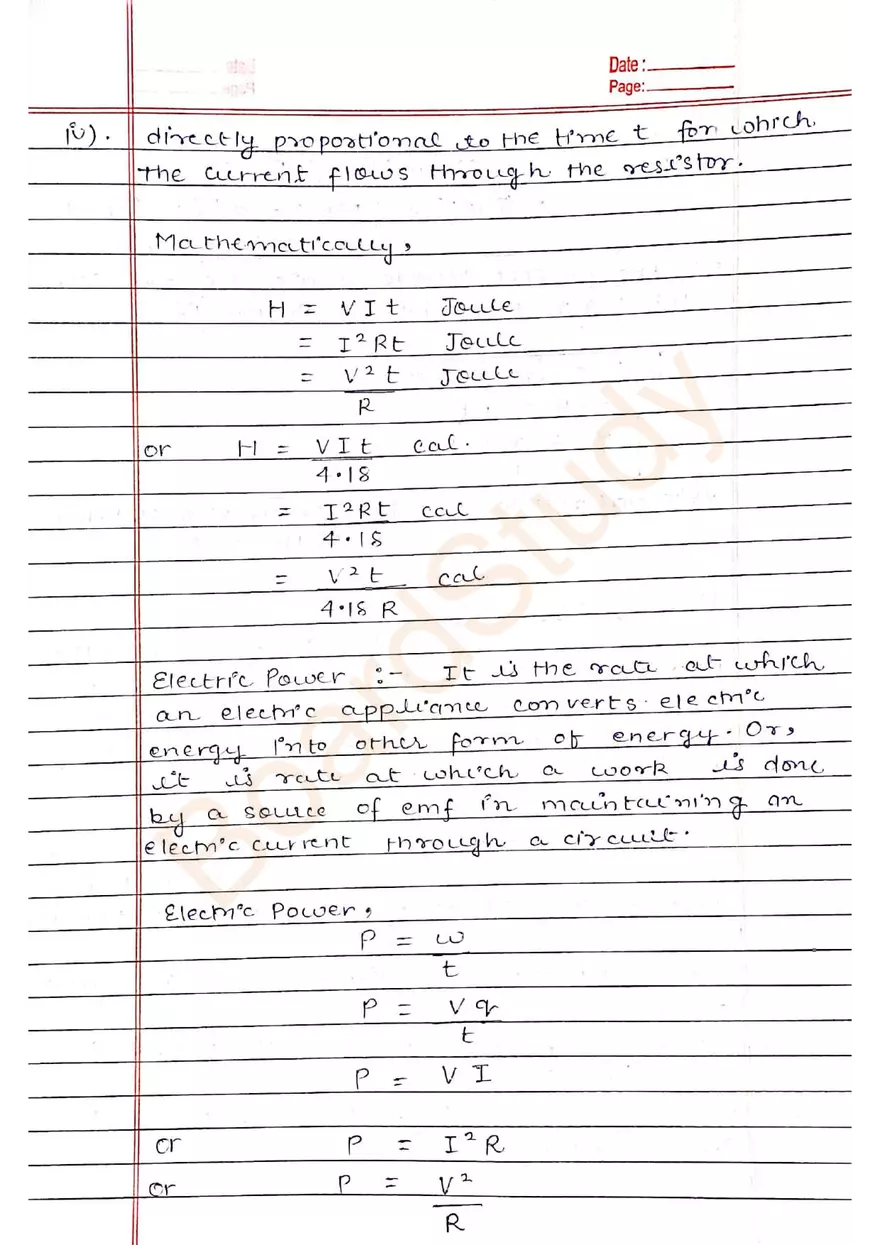 Date :
Page:
iv). directly proportional to the time t for which
the current flows through the resistor.
Mathematically,
H = V I t Joule
= I²Rt Joule
= V² t Joule
R
or H = V I t cal.
4.18
= I²Rt cal
4.18
= V² t cal
4.18 R
Electric Power :- It is the rate at which
an electric appliance converts electric
energy into other form of energy. Or,
it is rate at which a work is done
by a source of emf in maintaining an
electric current through a circuit.
Electric Power,
P = w
t
P = V q
t
P = V I
or P = I² R
or P = V²
R
BoardStudy